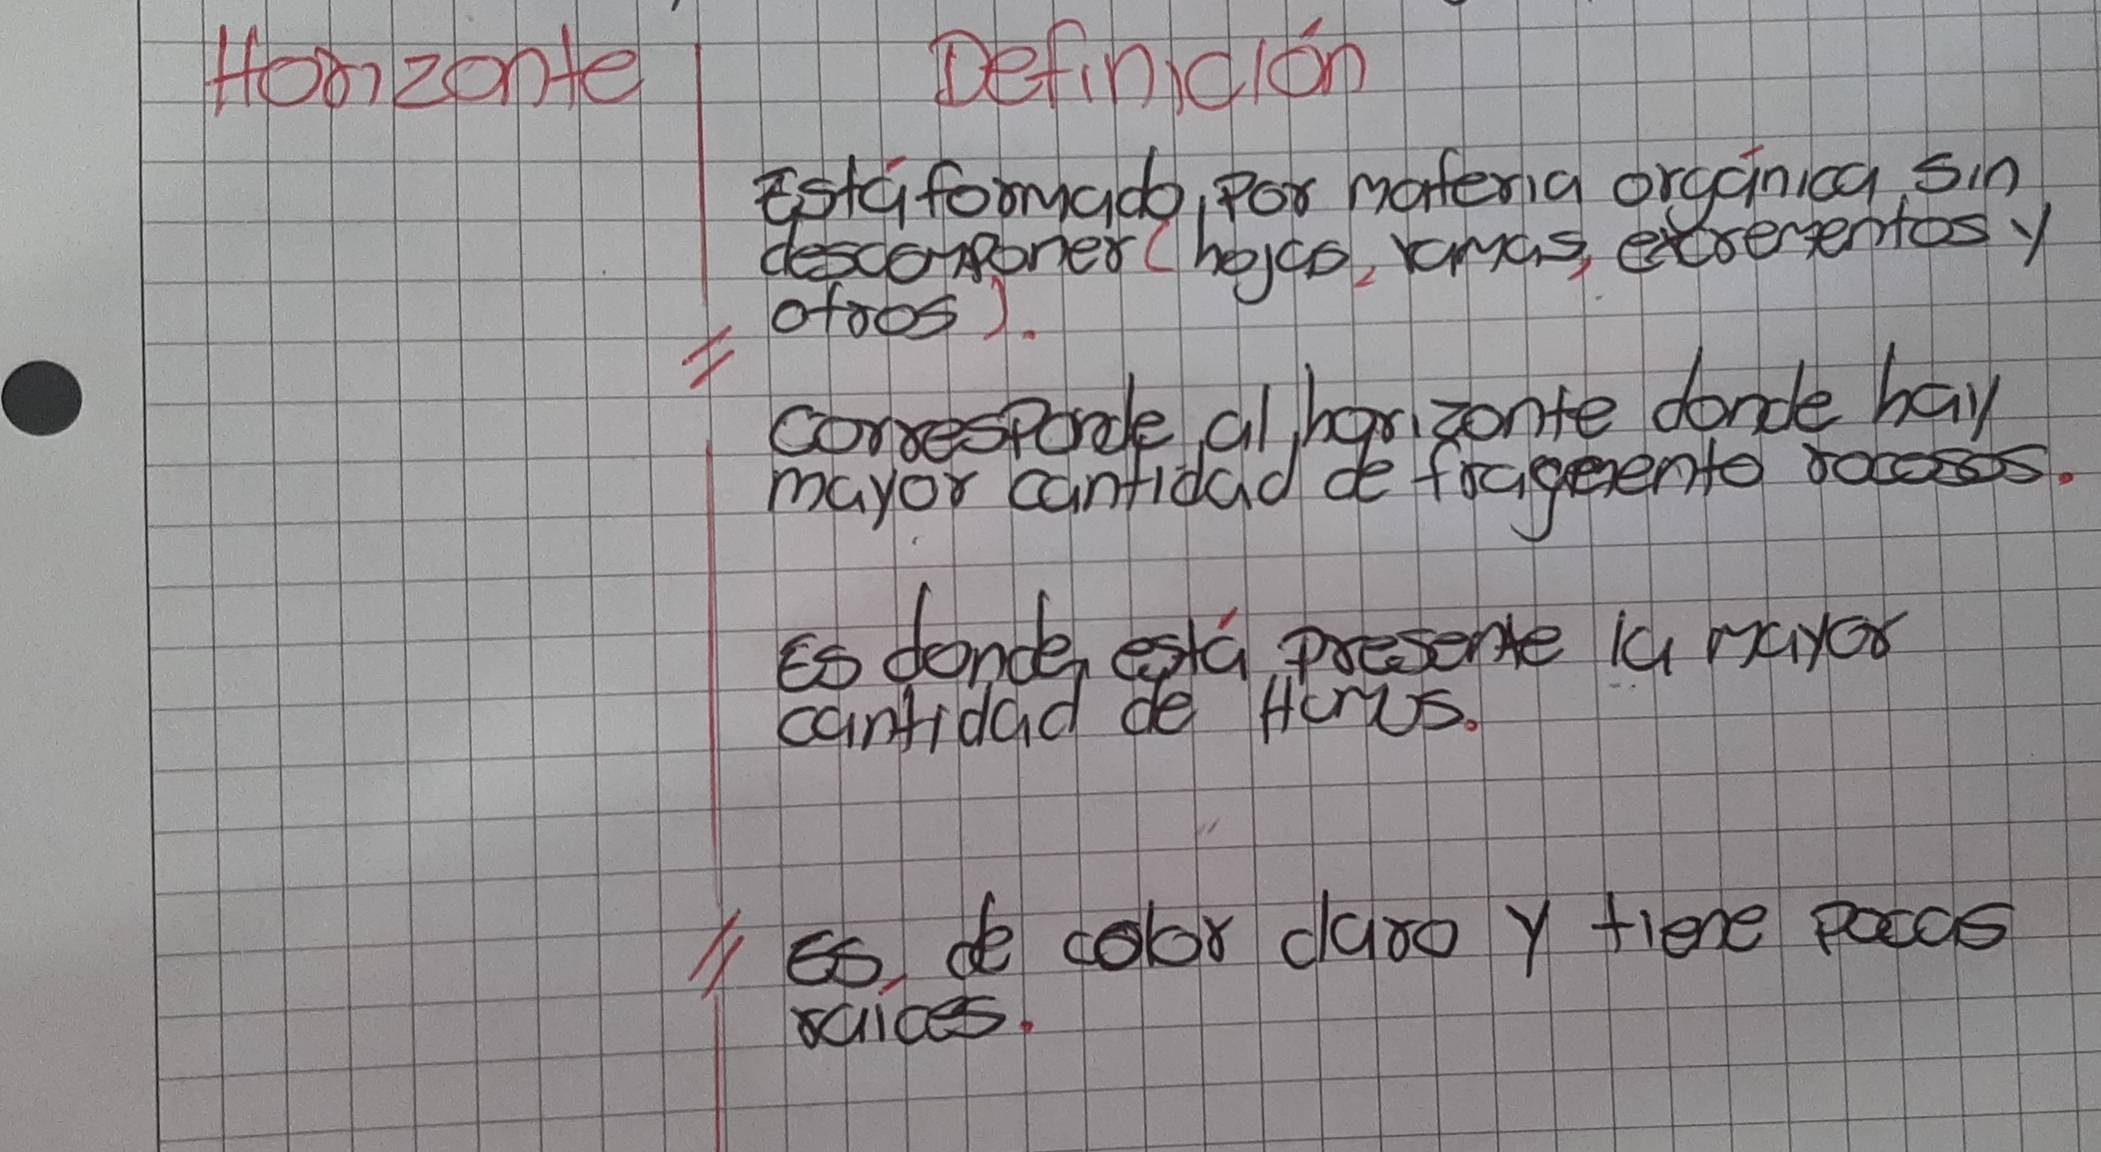 Horizonte Definición
Está formado por materia orgánica sin
descomponer (hojas, ramas, excrementos y
otros).
corresponde al horizonte donde hay
mayor cantidad de fragemento rocosos.
Es donde está presente la mayor
cantidad de Humus.
Es de color claro y tiene pocas
raices.